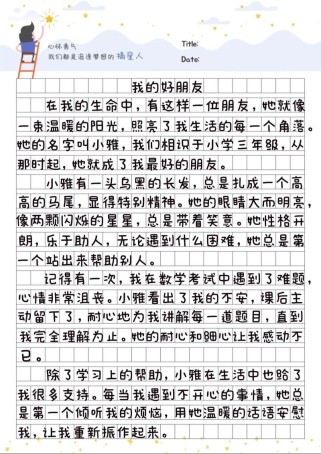 心怀勇气
我们都是追逐梦想的 摘星人
Title:
Date:
我的好朋友
在我的生命中，有这样一位朋友，她就像
一束温暖的阳光，照亮了我生活的每一个角落。
她的名字叫小雅，我们相识于小学三年级，从
那时起，她就成了我最好的朋友。
小雅有一头乌黑的长发，总是扎成一个高
高的马尾，显得特别精神。她的眼睛大而明亮，
像两颗闪烁的星星，总是带着笑意。她性格开
朗，乐于助人，无论遇到什么困难，她总是第
一个站出来帮助别人。
记得有一次，我在数学考试中遇到了难题，
心情非常沮丧。小雅看出了我的不安，课后主
动留下了，耐心地为我讲解每一道题目，直到
我完全理解为止。她的耐心和细心让我感动不
已。
除了学习上的帮助，小雅在生活中也给了
我很多支持。每当我遇到不开心的事情，她总
是第一个倾听我的烦恼，用她温暖的话语安慰
我，让我重新振作起来。